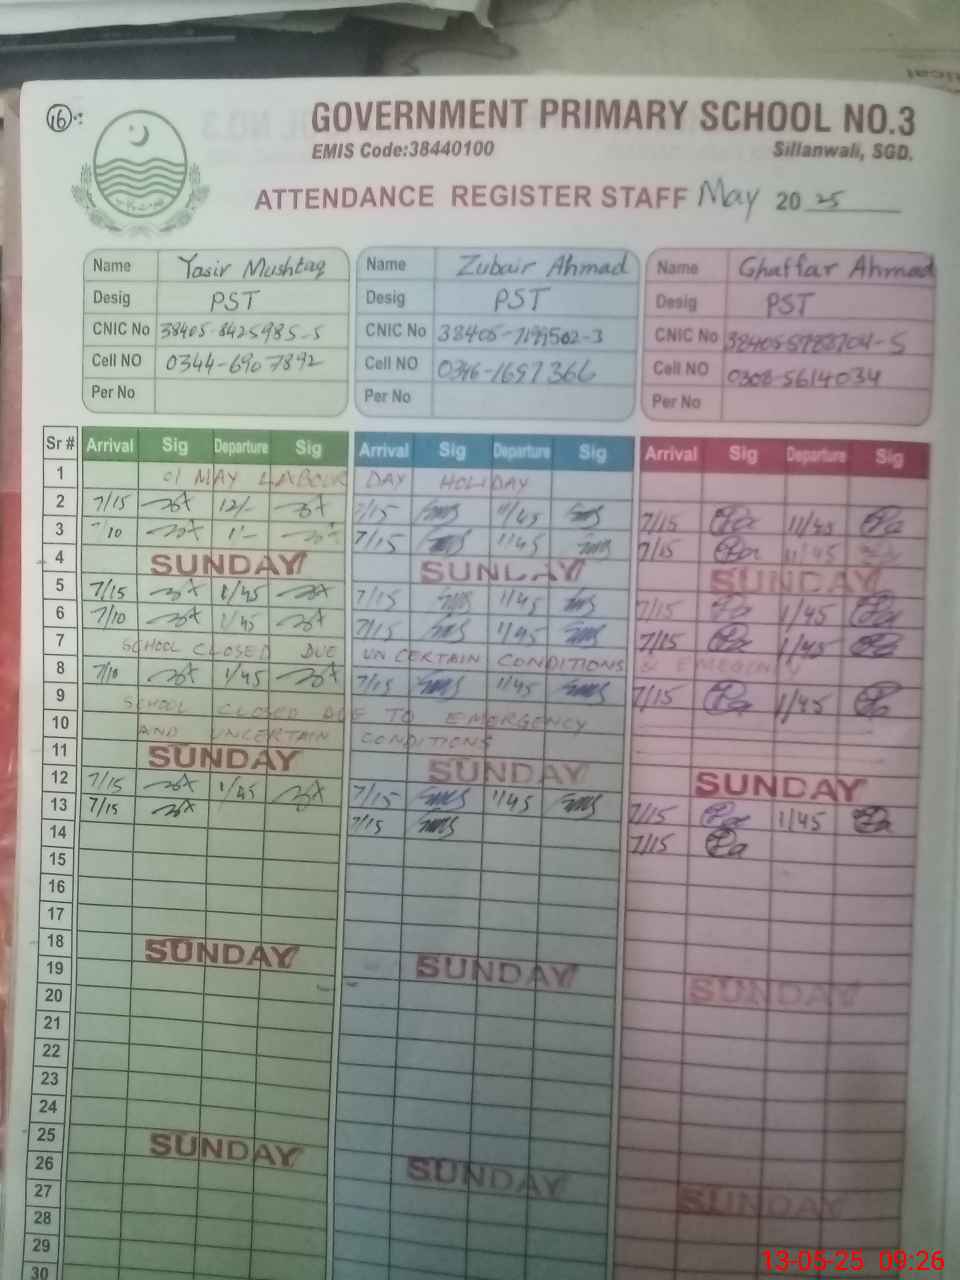 16
GOVERNMENT PRIMARY SCHOOL NO.3
EMIS Code:38440100 Sillanwali, SGD.
ATTENDANCE REGISTER STAFF May 20 25
Name Yasir Mushtaq Name Zubair Ahmad Name Ghaffar Ahmad
Desig PST Desig PST Desig PST
CNIC No 38405-8425985-5 CNIC No 38405-7199502-3 CNIC No
Cell NO 0344-6907892 Cell NO 0346-1697366 Cell NO 0308-5614034
Per No Per No Per No
Sr # Arrival Sig Departure Sig Arrival Sig Departure Sig Arrival Sig Departure Sig
1 01 MAY LABOUR DAY HOLIDAY
2 7/15 12/- 7/15 11/45 7/15 11/45
3 7/10 1/- 7/15 11/45 7/15 11/45
4 SUNDAY SUNDAY SUNDAY
5 7/15 1/45 7/15 1/45 7/15 1/45
6 7/10 1/45 7/15 1/45 7/15 1/45
7 SCHOOL CLOSED DUE UNCERTAIN CONDITIONS &
8 7/10 1/45 7/15 1/45 7/15 1/45
9 SCHOOL CLOSED DUE TO EMERGENCY
10 AND UNCERTAIN CONDITIONS
11 SUNDAY SUNDAY SUNDAY
12 7/15 1/45 7/15 1/45 7/15 1/45
13 7/15 7/15 7/15
14
15
16
17
18 SUNDAY SUNDAY SUNDAY
19
20
21
22
23
24
25 SUNDAY SUNDAY SUNDAY
26
27
28
29
30
13-05-25 09:26